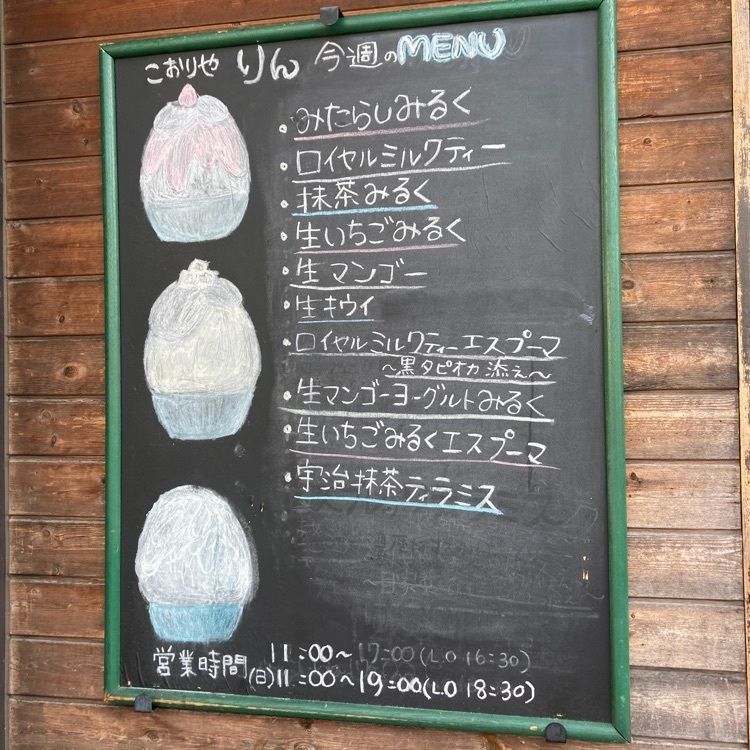 こおりや りん 今週のMENU
・みたらしみるく
・ロイヤルミルクティー
・抹茶みるく
・生いちごみるく
・生マンゴー
・生キウイ
・ロイヤルミルクティーエスプーマ
〜黒タピオカ添え〜
・生マンゴーヨーグルトみるく
・生いちごみるくエスプーマ
・宇治抹茶ティラミス
営業時間 11:00〜17:00(L.O 16:30)
(日)11:00〜19:00(L.O 18:30)